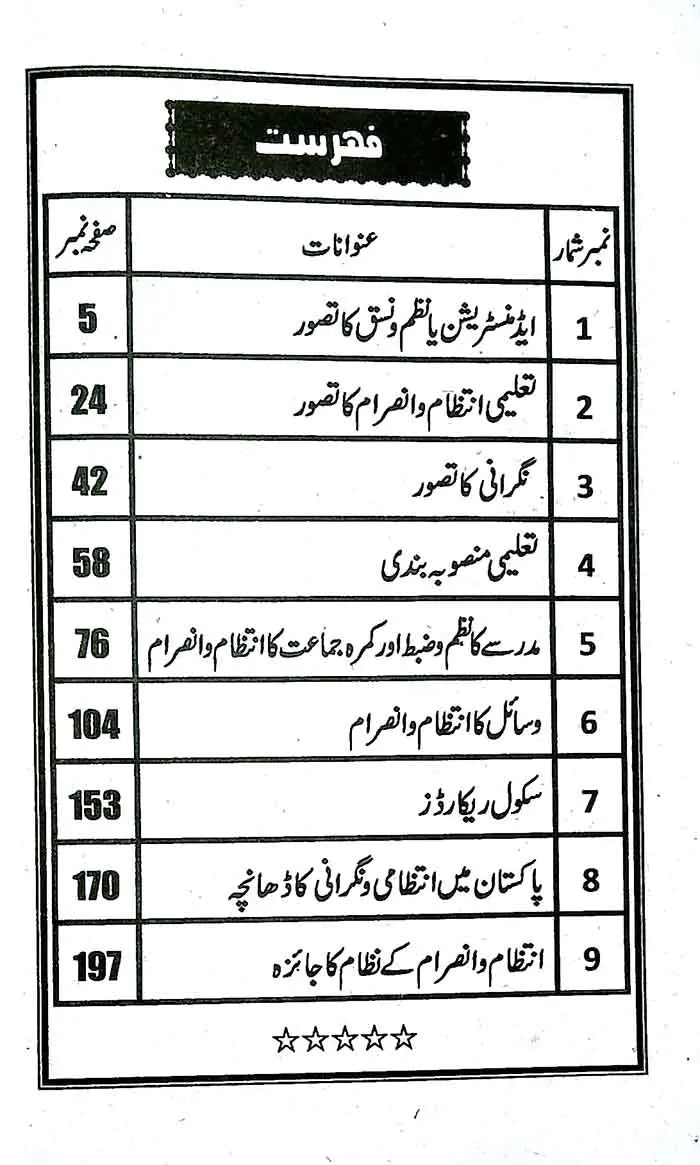 فہرست
نمبر شمار عنوانات صفحہ نمبر
1 ایڈمنسٹریشن یا نظم و نسق کا تصور 5
2 تعلیمی انتظام و انصرام کا تصور 24
3 نگرانی کا تصور 42
4 تعلیمی منصوبہ بندی 58
5 مدرسے کا نظم و ضبط اور کمرہ جماعت کا انتظام و انصرام 76
6 وسائل کا انتظام و انصرام 104
7 سکول ریکارڈز 153
8 پاکستان میں انتظامی و نگرانی کا ڈھانچہ 170
9 انتظام و انصرام کے نظام کا جائزہ 197
☆☆☆☆☆